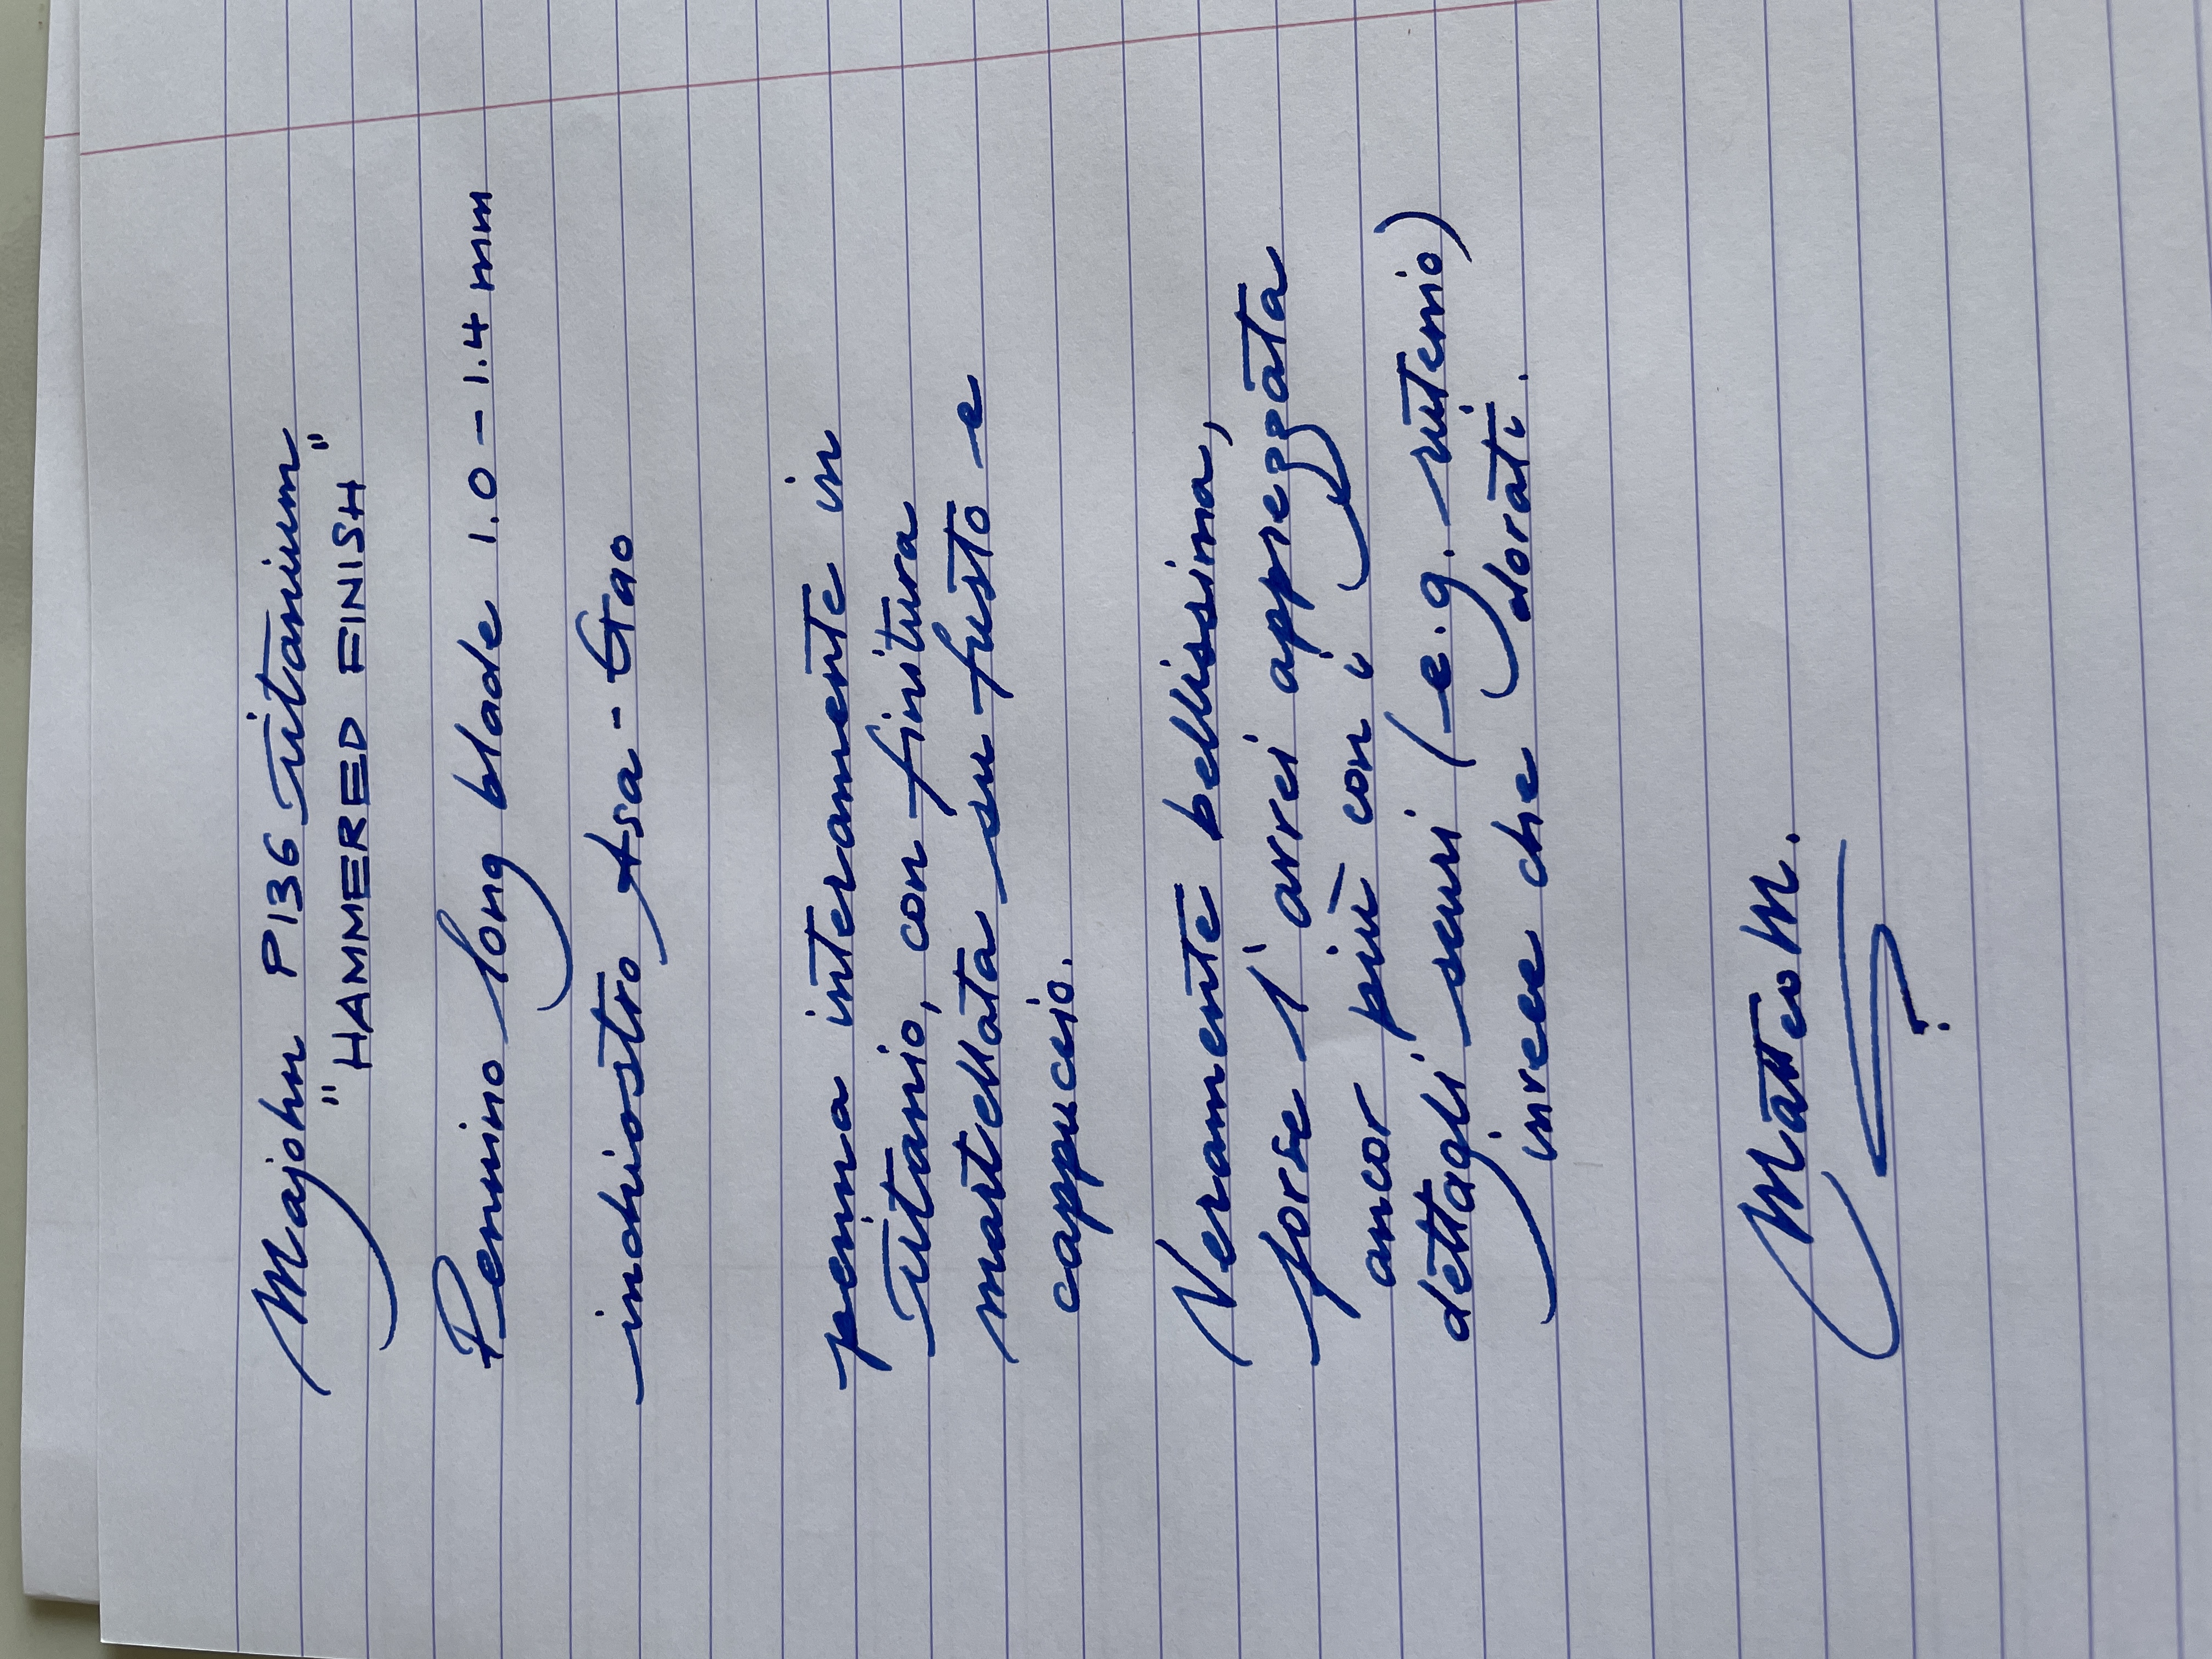 Majohn P136 titanium
"HAMMERED FINISH"
Pennino long blade 1.0 - 1.4 mm
inchiostro Asa-Gao
penna interamente in
titanio, con finitura
martellata su fusto e
cappuccio.
Veramente bellissima,
forse l'avrei apprezzata
ancor più con i
dettagli scuri (e.g. rutenio)
invece che dorati.
Matteo M.